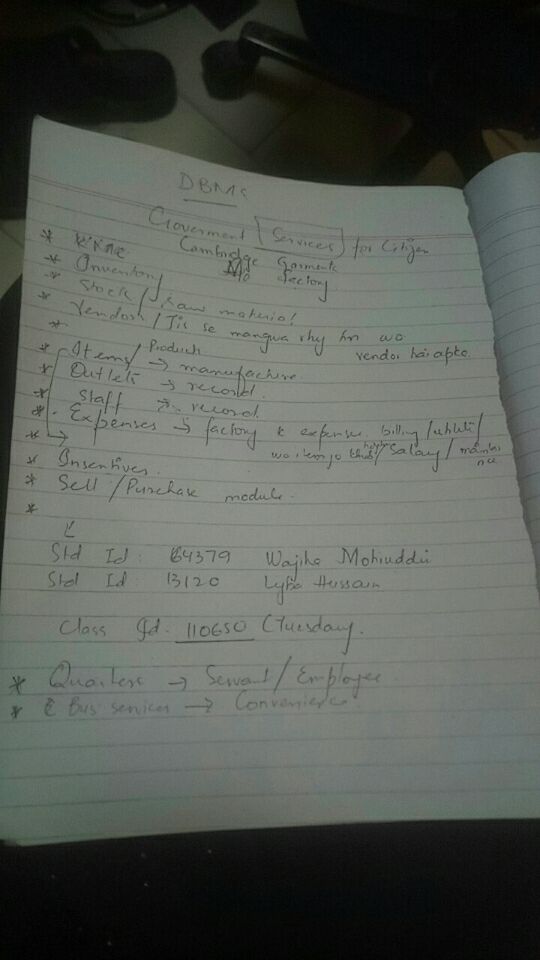 DBMS
Goverment Services for Citizen
Cambridge Garments
factory
* Inventory
* Stock / Raw material
* Vendor / Jis se mangwa rhy hn wo
vendor hai apka
*
* Items / Products → manufacture
* Outlets → record.
* Staff → record
* Expenses → factory k expenses billing / utiliti /
wo item jo / Salary /
* Insentives.
* Sell / Purchase module.
*
Std Id: 64379 Wajiha Mohiuddin
Std Id: 13120 Lyba Hussain
Class Id: 110650 (Tuesday).
* Quarters → Servant / Employee
* Bus services → Convenience.